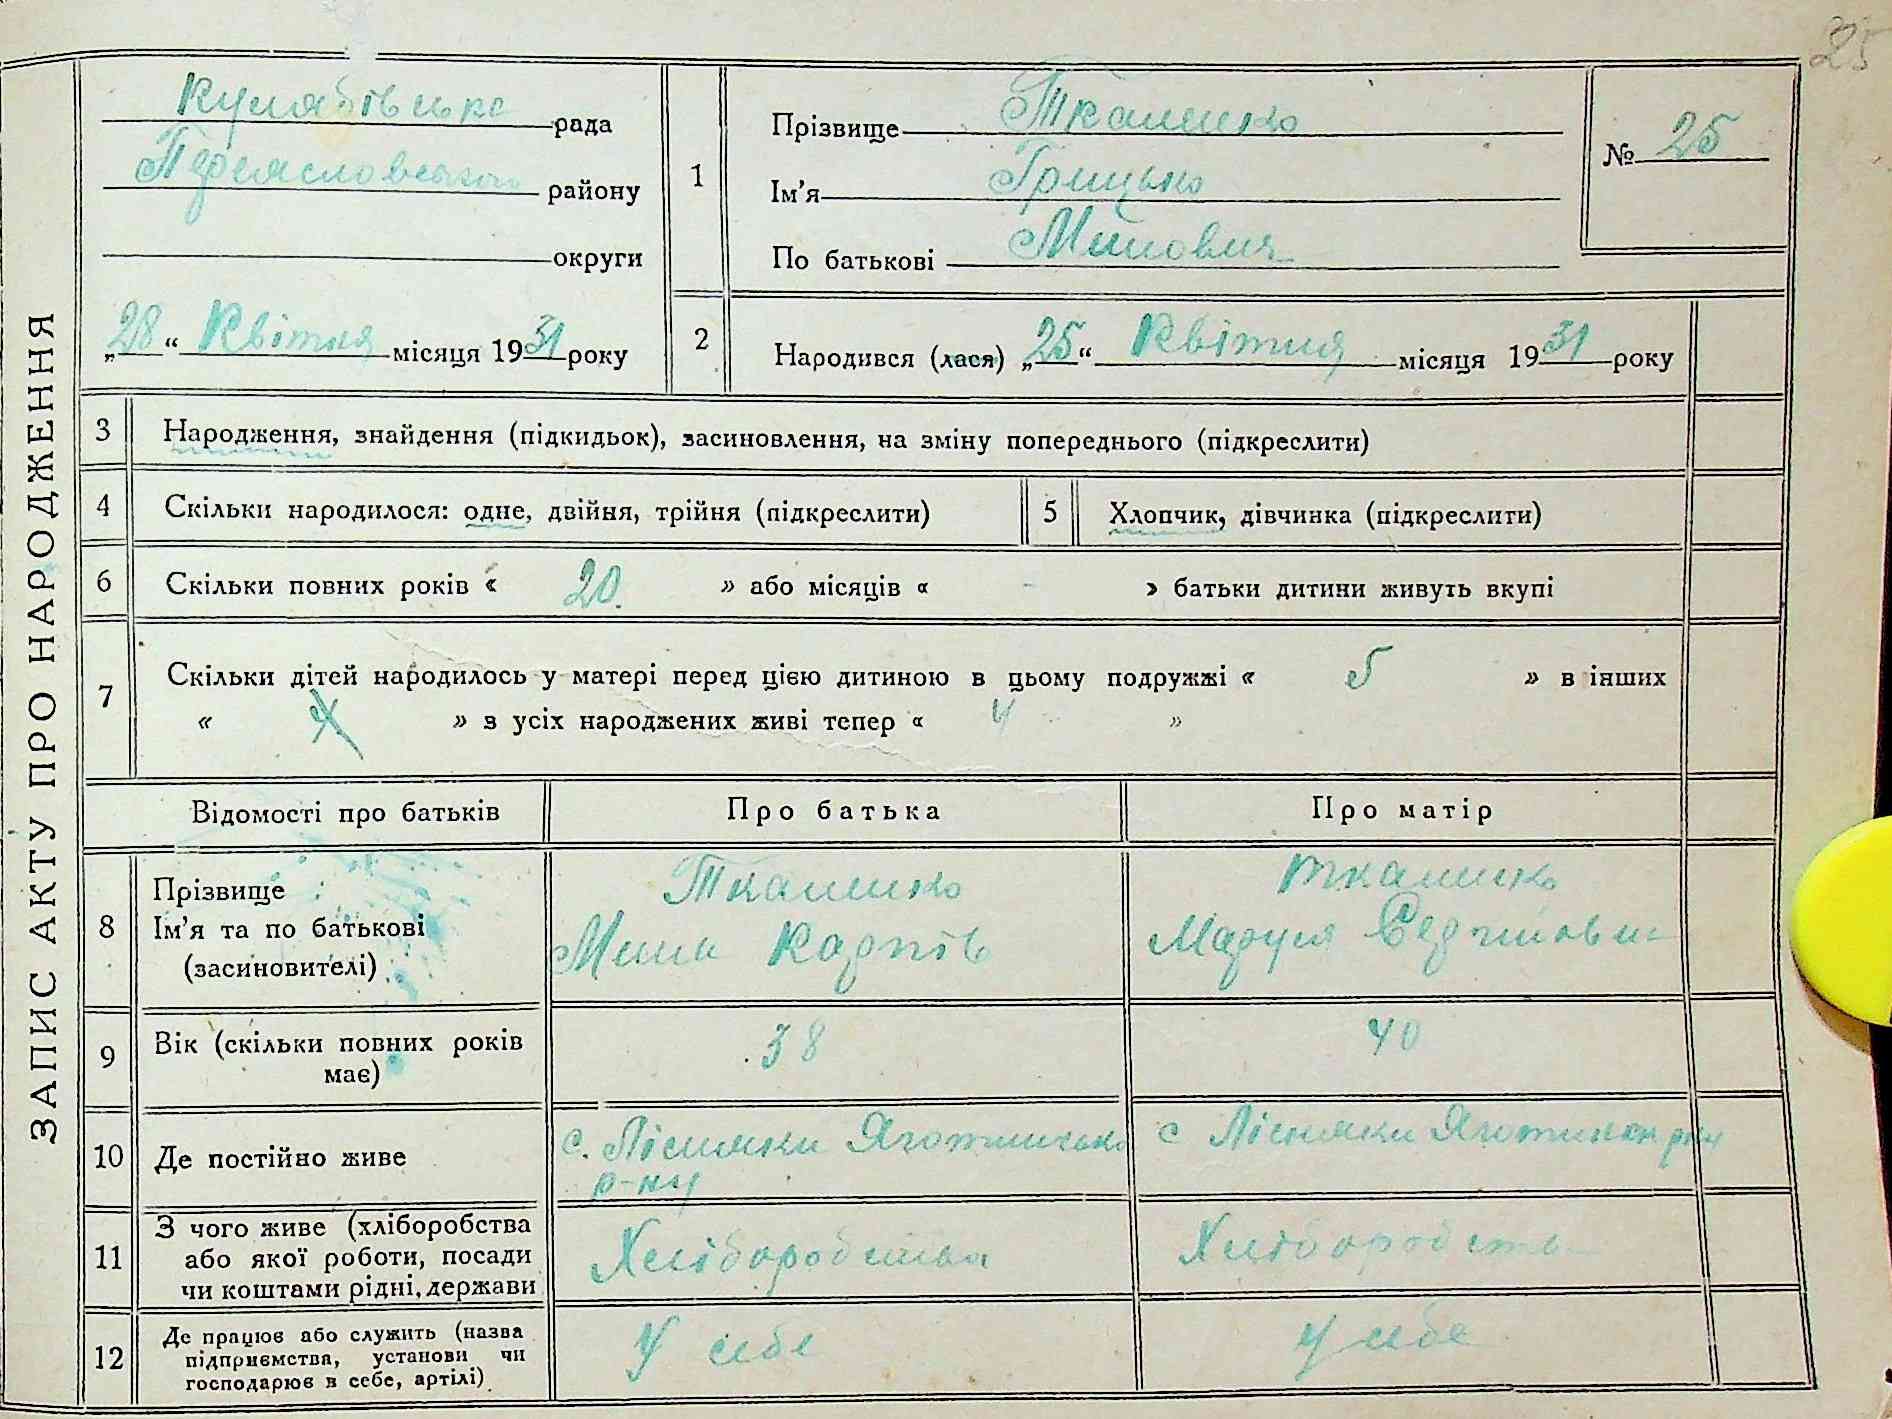 25
ЗАПИС АКТУ ПРО НАРОДЖЕННЯ
Кулябівська рада
Переяславського району
округи
„28“ Квітня місяця 1931 року
1
Прізвище Ткаченко
Ім’я Грицько
По батькові
№ 25
2
Народився (лася) „25“ Квітня місяця 1931 року
3 Народження, знайдення (підкидьок), засиновлення, на зміну попереднього (підкреслити)
4 Скільки народилося: одне, двійня, трійня (підкреслити)
5 Хлопчик, дівчинка (підкреслити)
6 Скільки повних років « 20 » або місяців « - » батьки дитини живуть вкупі
7 Скільки дітей народилось у матері перед цією дитиною в цьому подружжі « 5 » в інших
« » з усіх народжених живі тепер « 4 »
Відомості про батьків Про батька Про матір
8 Прізвище
Ім’я та по батькові
(засиновителі)
Ткаченко
Карпів
Ткаченко
Маруся
9 Вік (скільки повних років
має)
38
40
10 Де постійно живе
с. Лісняки Яготинсько
р-ну
с Лісняки
11 З чого живе (хліборобства
або якої роботи, посади
чи коштами рідні, держави
Хліборобства
Хліборобств
12 Де працює або служить (назва
підприємства, установи чи
господарює в себе, артілі)
У себе
У себе